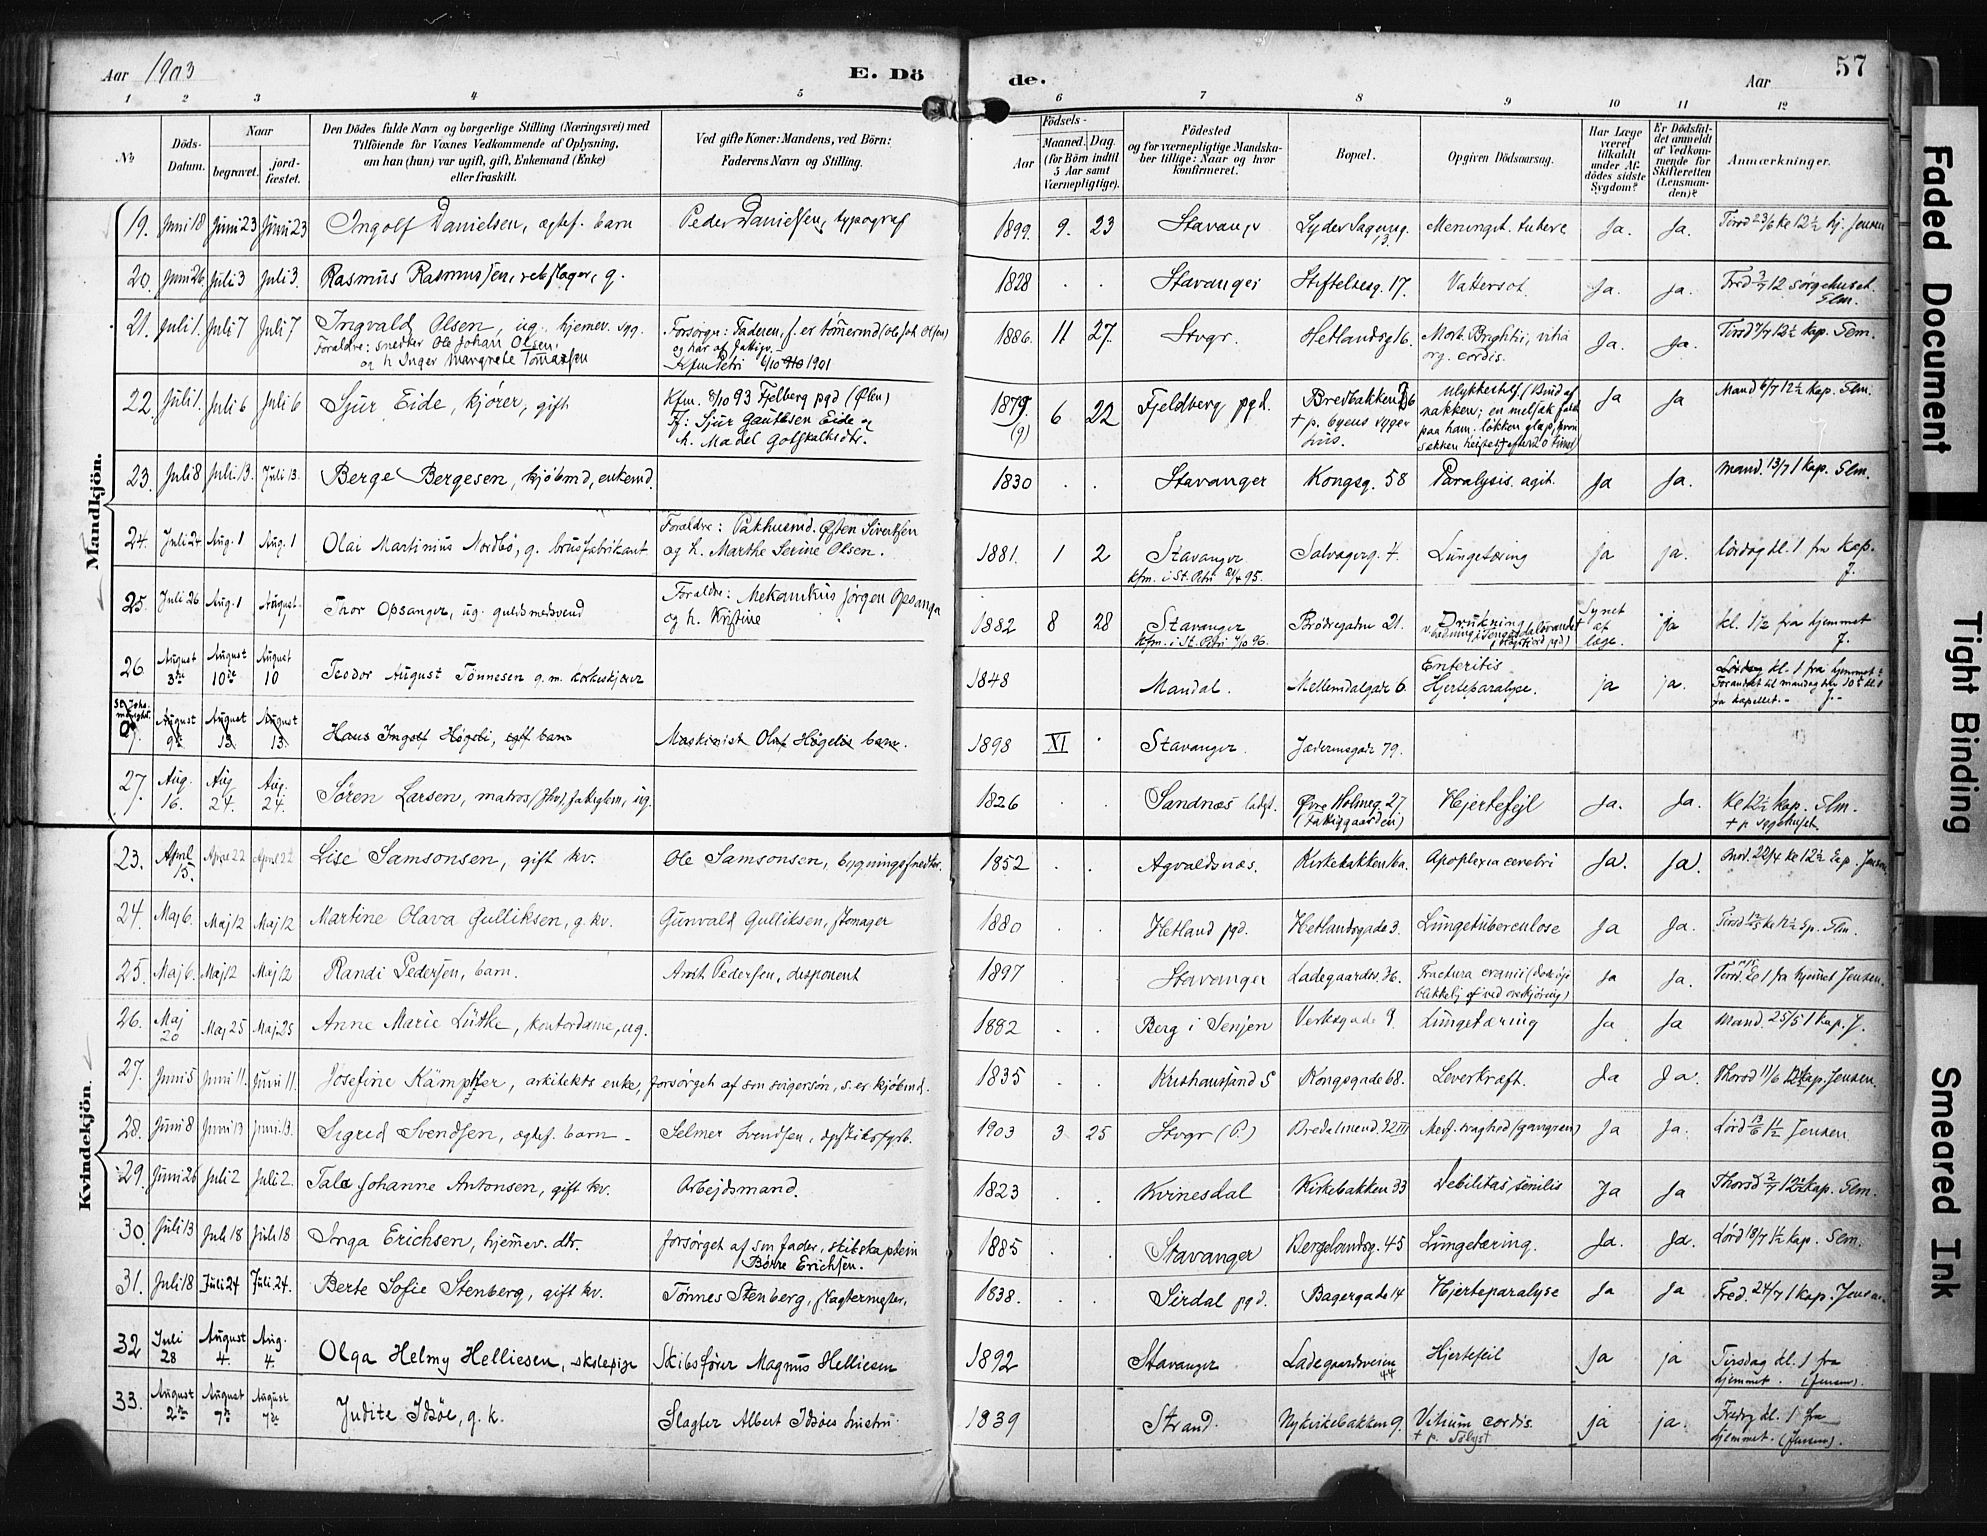 Aar 1903
E. Dö
de.
Aar
57
1 2 3 4 5 6 7 8 9 10 11 12
No
Döds-Datum.
Naar
begravet.
jord-fæstet.
Den Dödes fulde Navn og borgerlige Stilling (Næringsvei) med
Tilföiende for Voxnes Vedkommende af Oplysning,
om han (hun) var ugift, gift, Enkemand (Enke)
eller fraskilt.
Ved gifte Koner: Mandens, ved Börn:
Faderens Navn og Stilling.
Födsels-
Aar
Maaned. Dag.
(for Börn indtil
5 Aar samt
Værnepligtige).
Födested
og for værnepligtige Mandska-
ber tillige: Naar og hvor
konfirmeret.
Bopæl.
Opgiven Dödsaarsag.
Har Læge
været
tilkaldt
under Af-
dödes sidste
Sygdom?
Er Dödsfal-
det anmeldt
af Vedkom-
mende for
Skifteretten
(Lensman-
den)?
Anmærkninger.
Mandkjön.
19. Juni 18 Juni 23 Juni 23 Ingolf Danielsen, ægtef. barn Peder Danielsen, typograf 1899. 9. 23 Stavanger Lyder Sagensg. 13. Meningit. tuberc Ja. Ja. Tirsd 23/6 kl 12½ hj. Jensen
20. Juni 26. Juli 3 Juli 3. Rasmus Rasmussen, rebslager, g. 1828 . . Stavanger Stiftelsesg. 17. Vattersot. Ja. Ja. Fred 3/7 12 sørgehuset. Slm.
21. Juli 1. Juli 7 Juli 7 Ingvald Olsen, ug. hjemev. syg.
Foraldre: snedker Ole Johan Olsen,
og h Inger Margrete Tomassen
Forsørgn: Faderen, f. er tømermd (Ole Joh Olsen)
og har af fattigv.
Kfm Petri 6/10 1901
1886. 11 27. Stvgr. Hetlandsg 16. Morb. Brightii, vitia
org. cordis. Ja. Ja. Tirsd 7/7 12½ kap. Slm.
22. Juli 1. Juli 6 Juli 6 Sjur Eide, kjører, gift
Kfm. 8/10 93 Fjelberg pgd (Ølen)
Ff: Sjur Gautesen Eide og
h. Madel
1879. (9) 6 22 Fjeldberg pgd. Bredbakken 26
+ p. byens syge-
hus.
Ulykkestilf. / Brud af
nakken; en melsæk faldt
paa ham. Ja Ja Mand 6/7 12½ kap. Slm.
23. Juli 8 Juli 13. Juli 13. Berge Bergesen, kjøbmd, enkemd. 1830 . . Stavanger Kongsg. 58 Paralysis. agit. Ja Ja. Mand. 13/7 1 kap. Slm.
24. Juli 24 Aug. 1 Aug. 1 Olai Martinius Nordbø, g. brusfabrikant
Foraldre: Pakhusmd. Østen Sivertsen
og h. Marthe Serine Olsen.
1881. 1 2 Stavanger
Kfm. i St. Petri 21/4 95. Salvagerg. 4. Lungetæring ja ja. lørdag kl. 1 fra kap. J.
25. Juli 26 Aug. 1 August Thor Opsanger, ug. guldsmedsvend
Foraldre: Mekanikus Jørgen Opsanger
og h. Kristine
1882 8 28 Stavanger
Kfm. i St. Petri 4/10 96. Brødregaden 21. Drukning Synet
af
læge. ja kl. 1½ fra hjemmet J.
26 August 3die August 10de August 10 Teodor August Tønnesen g. m. korkeskjærer 1848 Mandal. Mellemdalgade 6. Enteritis.
Hjerteparalyse. ja ja. Lørdag kl. 1 fra hjemmet
Forandret til mandag den 10de kl. 1
fra kapellet. J.
St. Johs.
menighed.
August 9de August 13. August 13. Hans Ingolf Høgeli, egtf barn Maskinist Oluf Høgelis barn. 1898 XI . Stavanger. Jædermsgade 79.
27. Aug. 16. Aug 24. Aug. 24. Søren Larsen, matros, fattiglem, ug. 1826 . . Sandnæs ladst. Øvre Holmeg. 27
(Fattiggaarden) Hjertefejl Ja. Ja. Kl 12½ kap. Slm.
+ p. sygehuset.
Kvindekjön.
23. April 15. April 22 April 22 Lise Samsonsen, gift kv. Ole Samsonsen, bygningssnedker. 1852 . . Agvaldsnæs. Kirkebakken 16a. Apoplexia cerebri Ja. Ja. Onsd. 22/4 kl 12½ kap. Jensen
24. Maj 6. Maj 12 Maj 12 Martine Olava Gulliksen, g. kv. Gunvald Gulliksen, stenager 1880 . . Hetland pgd. Hetlandsgade 3. Lungetuberculose Ja Ja. Tirsd 12/5 kl 12½ Sp. Slm.
25. Maj 6. Maj 12 Maj 12 Randi Pedersen, barn. Arnt Pedersen, disponent 1897 . . Stavanger Ladegaardsv. 36. Fractura cranii (død øje-
blikkelig ved overkjøring) Ja Ja. Tirsd. kl 1 fra hjemmet Jensen.
26. Maj 20 Maj 25 Maj 25 Anne Marie Lütke, kontordame, ug. 1882 . . Berg i Senjen Verksgade 9. Lungetæring Ja Ja Mand. 25/5 1 kap. J.
27. Juni 5 Juni 11. Juni 11. Josefine Kämpffer, arkitekts enke, forsørget af sin svigersøn, s. er kjøbmd. 1835 . . Kristiansand S Kongsgade 68. Leverkræft. Ja Ja. Thorsd 11/6 12½ kap. Jensen.
28. Juni 8 Juni 13 Juni 13. Sigrid Svendsen, ægtef. barn Selmer Svendsen, 1903 3 25 Stvgr (P.) Bredalmend. 22 III Medf. svaghed (gangren) Ja Ja. Lørd 13/6 1½ Jensen.
29. Juni 26 Juli 2 Juli 2. Tale Johanne Antonsen, gift kv. Arbejdsmand. 1823 . . Kvinesdal Kirkebakken 33 Debilitas senilis Ja Ja Thorsd 2/7 12½ kap. Slm.
30. Juli 13 Juli 18 Juli 18 Inga Erichsen, hjemev. dtr. forsørget af sin fader, skibskaptein
Børre Erichsen. 1885 . . Stavanger Bergelandsg. 45 Lungetæring. Ja. Ja. Lørd 18/7 1½ kap. Slm.
31. Juli 18 Juli 24 Juli 24. Berte Sofie Stenberg, gift kv. Tønnes Stenberg, slagtermester. 1838. . . Sirdal pgd. Bagergade 14 Hjerteparalyse Ja Ja Fred. 24/7 1 kap. Jensen
32 Juli 28 August 4. Aug. 4. Olga Helmy Helliesen, skolepige Skibsfører Magnus Helliesen 1892 Stavanger Ladegaardsveien 44 Hjertefeil Ja ja Tirsdag kl. 1 fra
hjemmet. (Jensen).
33. August 2den August 7de August 7de Judite Idsøe, g. k. Slagter Albert Idsøes hustru. 1839 Strand. Nykirkebakken 9. Vitium cordis.
+ p. Sølyst ja ja. Fredag kl. 1 fra
hjemmet. (Jensen).
Faded Document
Tight Binding
Smeared Ink